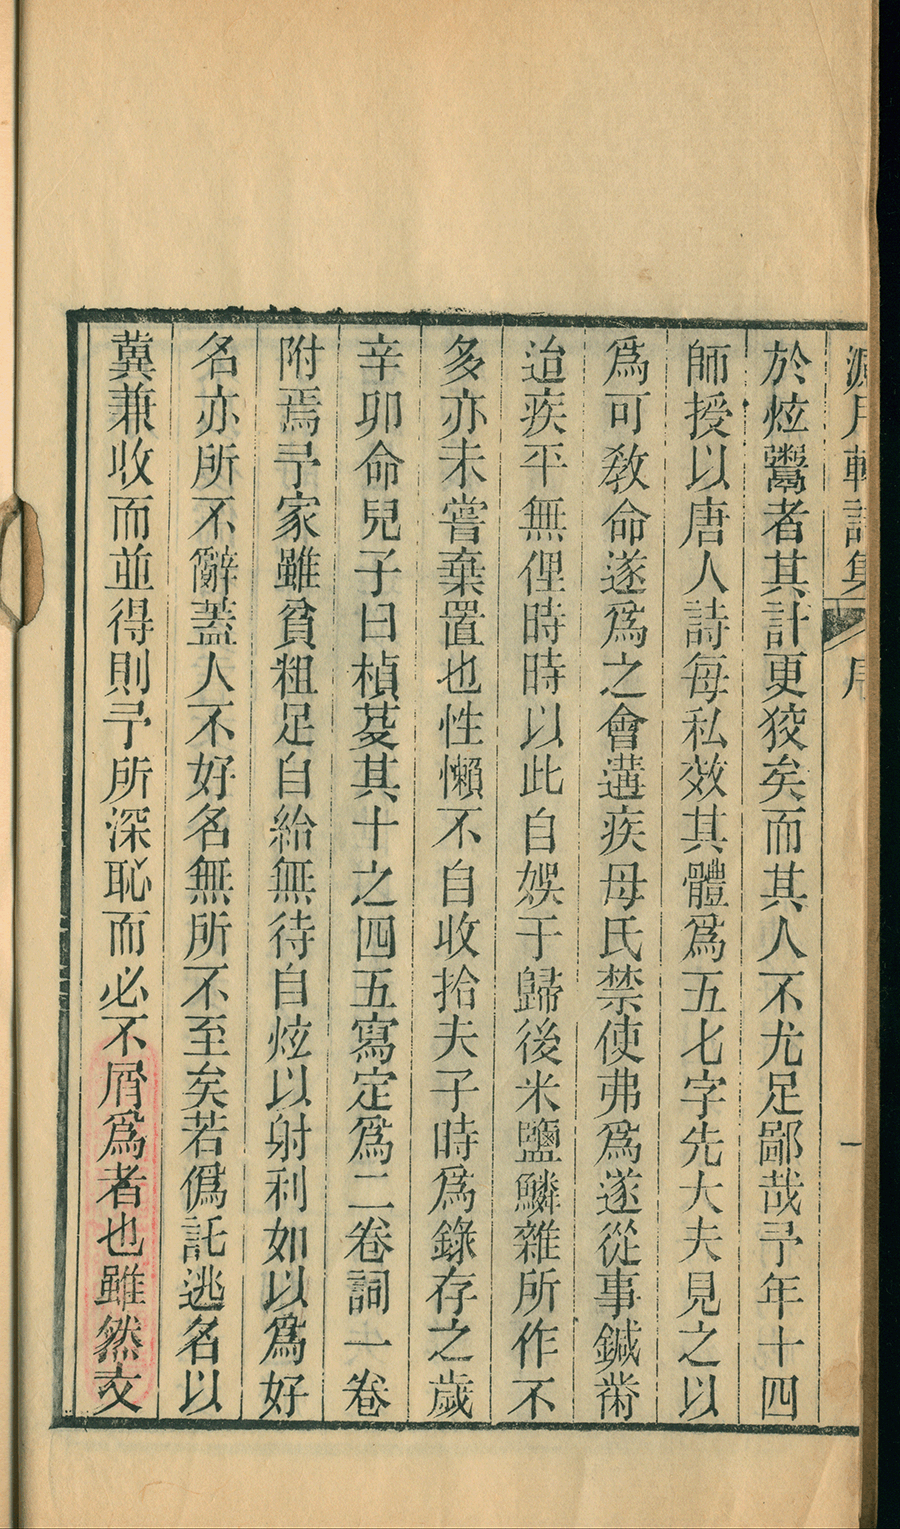 月軒詩集 序 一
於炫鬻者其計更狡矣而其人不尤足鄙哉予年十四
師授以唐人詩每私效其體爲五七字先大夫見之以
爲可敎命遂爲之會遘疾母氏禁使弗爲遂從事鍼黹
迨疾平無俚時時以此自娛于歸後米鹽鱗雜所作不
多亦未嘗棄置也性懶不自收拾夫子時爲錄存之歲
辛卯命兒子曰楨芟其十之四五寫定爲二卷詞一卷
附焉予家雖貧粗足自給無待自炫以射利如以爲好
名亦所不辭蓋人不好名無所不至矣若僞託逃名以
冀兼收而並得則予所深恥而必不屑爲者也雖然文